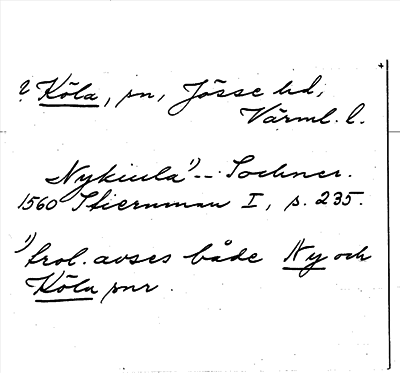 ? Köla, sn, Jösse hd,
Värml. l.
Nykiula¹) -- Sochner.
1560 Stiernman I, s. 235.
¹) trol. avses både Ny och
Köla snr.